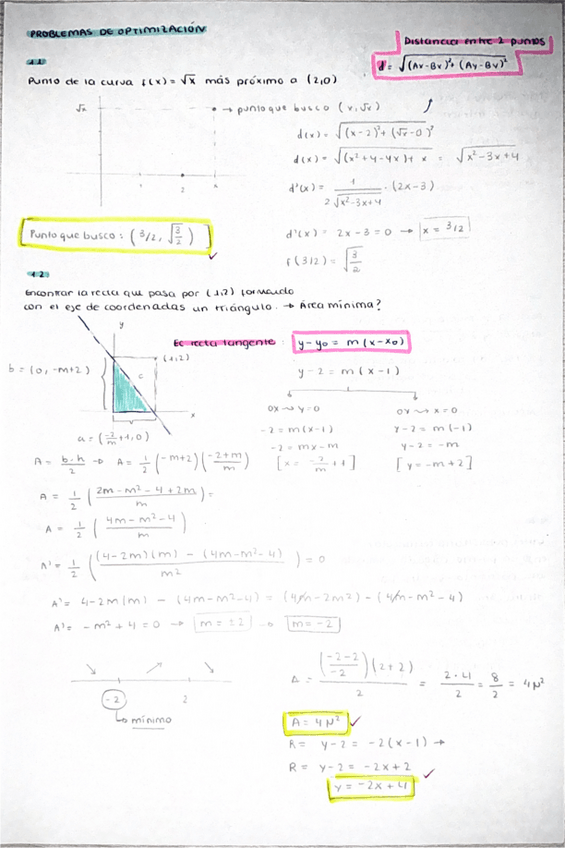 PROBLEMAS DE OPTIMIZACIÓN
Distancia entre 2 puntos
d = √((Ax-Bx)²+(Ay-By)²)
1.1
Punto de la curva f(x) = √x más próximo a (2,0)
√x
→ punto que busco (x,√x)
d(x) = √((x-2)²+(√x-0)²)
d(x) = √((x²+4-4x)+x) = √(x²-3x+4)
d'(x) = 1/(2√(x²-3x+4)) · (2x-3)
d'(x) = 2x-3=0 → x = 3/2
f(3/2) = √(3/2)
Punto que busco: (3/2, √(3/2))
1.2
Encontrar la recta que pasa por (1,2) formando
con el eje de coordenadas un triángulo. → Área mínima?
y
(1,2)
x
b = (0, -m+2)
a = (-2/m+1,0)
Ec recta tangente: y-y₀ = m(x-x₀)
y-2 = m(x-1)
OX → y=0
-2 = m(x-1)
-2 = mx-m
[x = -2/m + 1]
OY → x=0
y-2 = m(-1)
y-2 = -m
[y = -m+2]
A = b·h/2 → A = 1/2 (-m+2)(-2+m/m)
A = 1/2 (2m-m²-4+2m/m) =
A = 1/2 (4m-m²-4/m)
A' = 1/2 ((4-2m)(m) - (4m-m²-4)/m²) = 0
A' = 4-2m(m) - (4m-m²-4) = (4m-2m²)-(4m-m²-4)
A' = -m²+4=0 → m = ±2 → m = -2
-2
2
mínimo
A = ((-2-2/-2)(2+2))/2 = 2·4/2 = 8/2 = 4µ²
A = 4µ²
R = y-2 = -2(x-1) →
R = y-2 = -2x+2
y = -2x+4